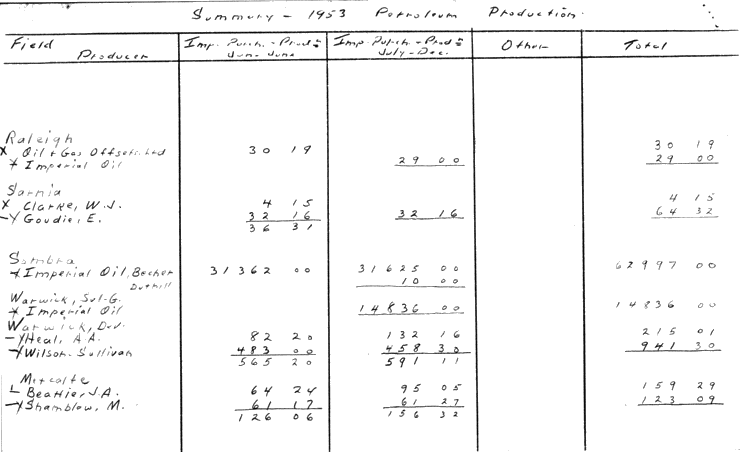 Summary - 1953 Petroleum Production
Field Producer Imp. Purch. - Prod= Jan-June Imp. Purch. - Prod= July-Dec. Other Total
Raleigh
X Oil & Gas Offsets. Ltd 30 19 30 19
+ Imperial Oil 29 00 29 00
Sarnia
X Clarke, W. J. 4 15 4 15
-Y Goudie, E. 32 16 32 16 64 32
36 31
Sombra
+ Imperial Oil, Becher 31362 00 31625 00 62997 00
Duthill 10 00
Warwick, Sul-G.
+ Imperial Oil 14836 00 14836 00
Warwick, Dev.
-Y Heal, A.A. 82 20 132 16 215 01
+ Wilson-Sullivan 483 00 458 30 941 30
565 20 591 11
Metcalfe
L Beattie, J.A. 64 24 95 05 159 29
-Y Shamblow, M. 61 17 61 27 123 09
126 06 156 32